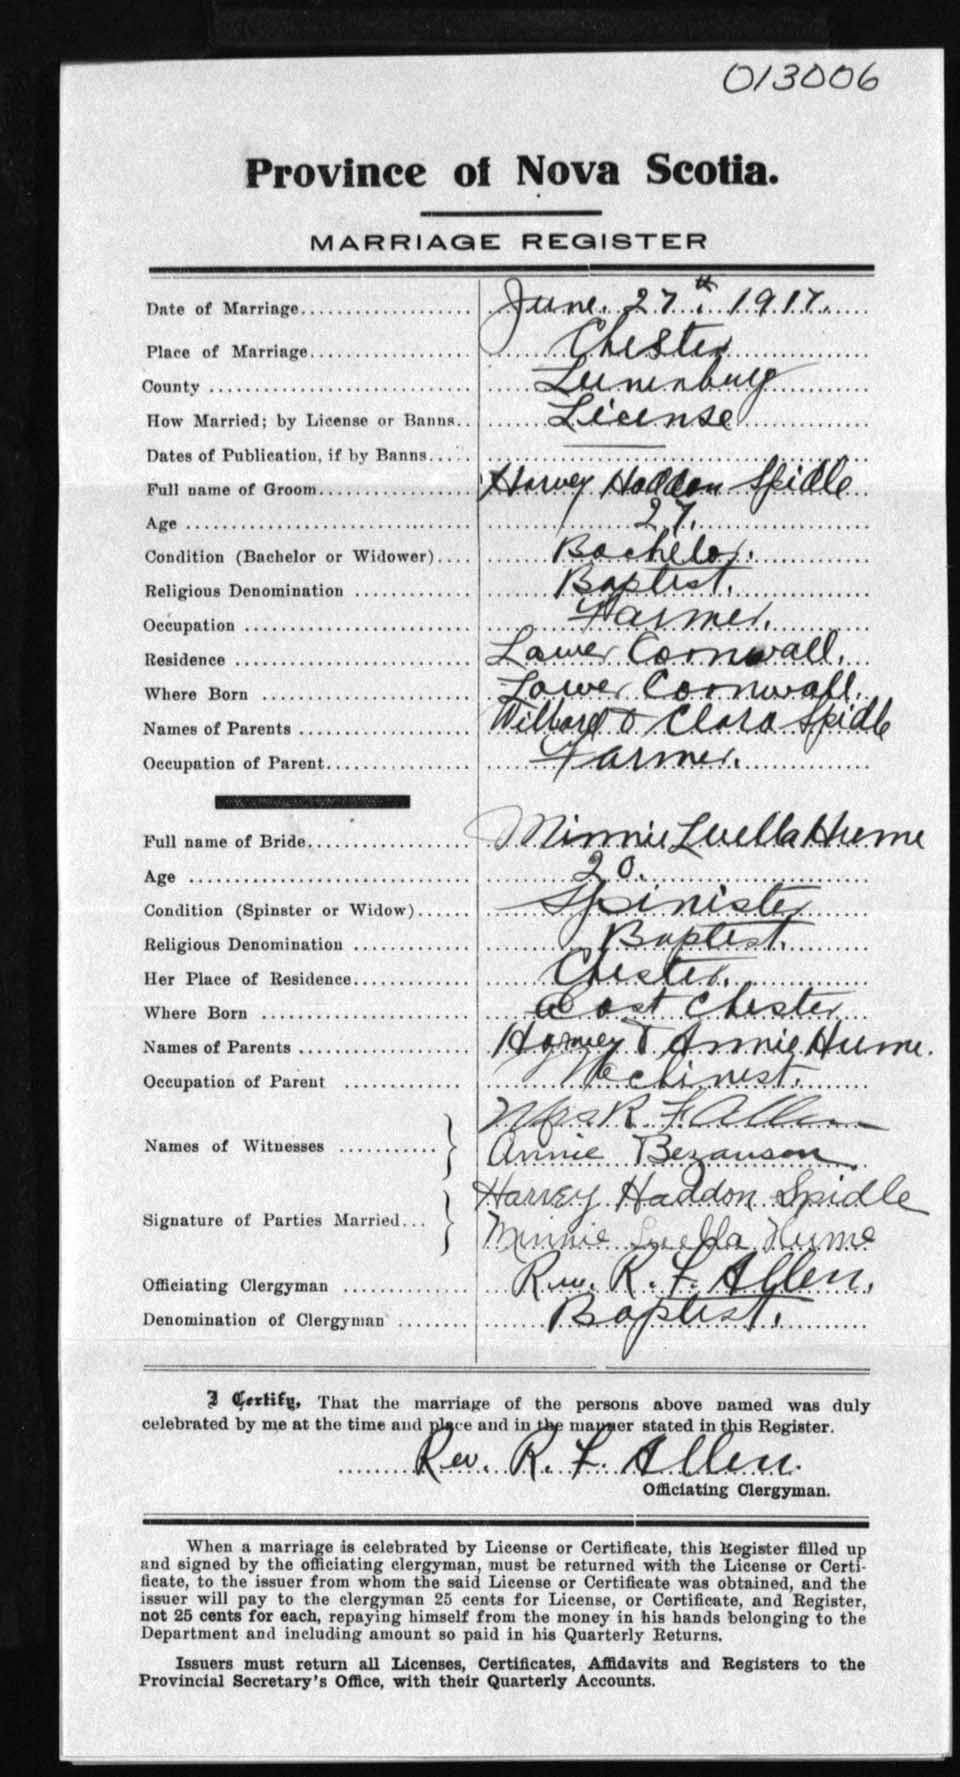 013006
Province of Nova Scotia.
MARRIAGE REGISTER
Date of Marriage June 27th 1917.
Place of Marriage Chester
County Lunenburg
How Married; by License or Banns License
Dates of Publication, if by Banns
Full name of Groom Harvey Haddon Spidle
Age 27.
Condition (Bachelor or Widower) Bachelor.
Religious Denomination Baptist.
Occupation Farmer.
Residence Lower Cornwall.
Where Born Lower Cornwall.
Names of Parents Willard & Clara Spidle
Occupation of Parent Farmer.
Full name of Bride Minnie Luella Hume
Age 20.
Condition (Spinster or Widow) Spinister
Religious Denomination Baptist.
Her Place of Residence Chester.
Where Born East Chester
Names of Parents Harvey & Annie Hume.
Occupation of Parent Mechinest.
Names of Witnesses Mrs R F Allen
Annie Bezanson
Signature of Parties Married Harvey Haddon Spidle
Minnie Luella Hume
Officiating Clergyman Rev. R. F. Allen.
Denomination of Clergyman Baptist.
I Certify, That the marriage of the persons above named was duly
celebrated by me at the time and place and in the manner stated in this Register.
Rev. R. F. Allen.
Officiating Clergyman.
When a marriage is celebrated by License or Certificate, this Register filled up
and signed by the officiating clergyman, must be returned with the License or Certi-
ficate, to the issuer from whom the said License or Certificate was obtained, and the
issuer will pay to the clergyman 25 cents for License, or Certificate, and Register,
not 25 cents for each, repaying himself from the money in his hands belonging to the
Department and including amount so paid in his Quarterly Returns.
Issuers must return all Licenses, Certificates, Affidavits and Registers to the
Provincial Secretary's Office, with their Quarterly Accounts.